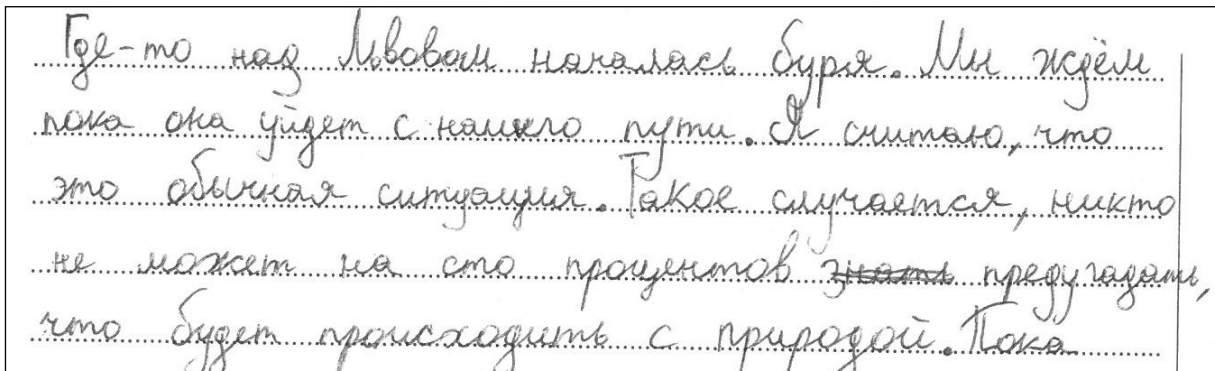 Где-то над Львовам началась буря. Мы ждём
пока она уйдет с нашего пути. Я считаю, что
это обычная ситуация. Такое случается, никто
не может на сто процентов знать предугадать,
что будет происходить с природой. Пока